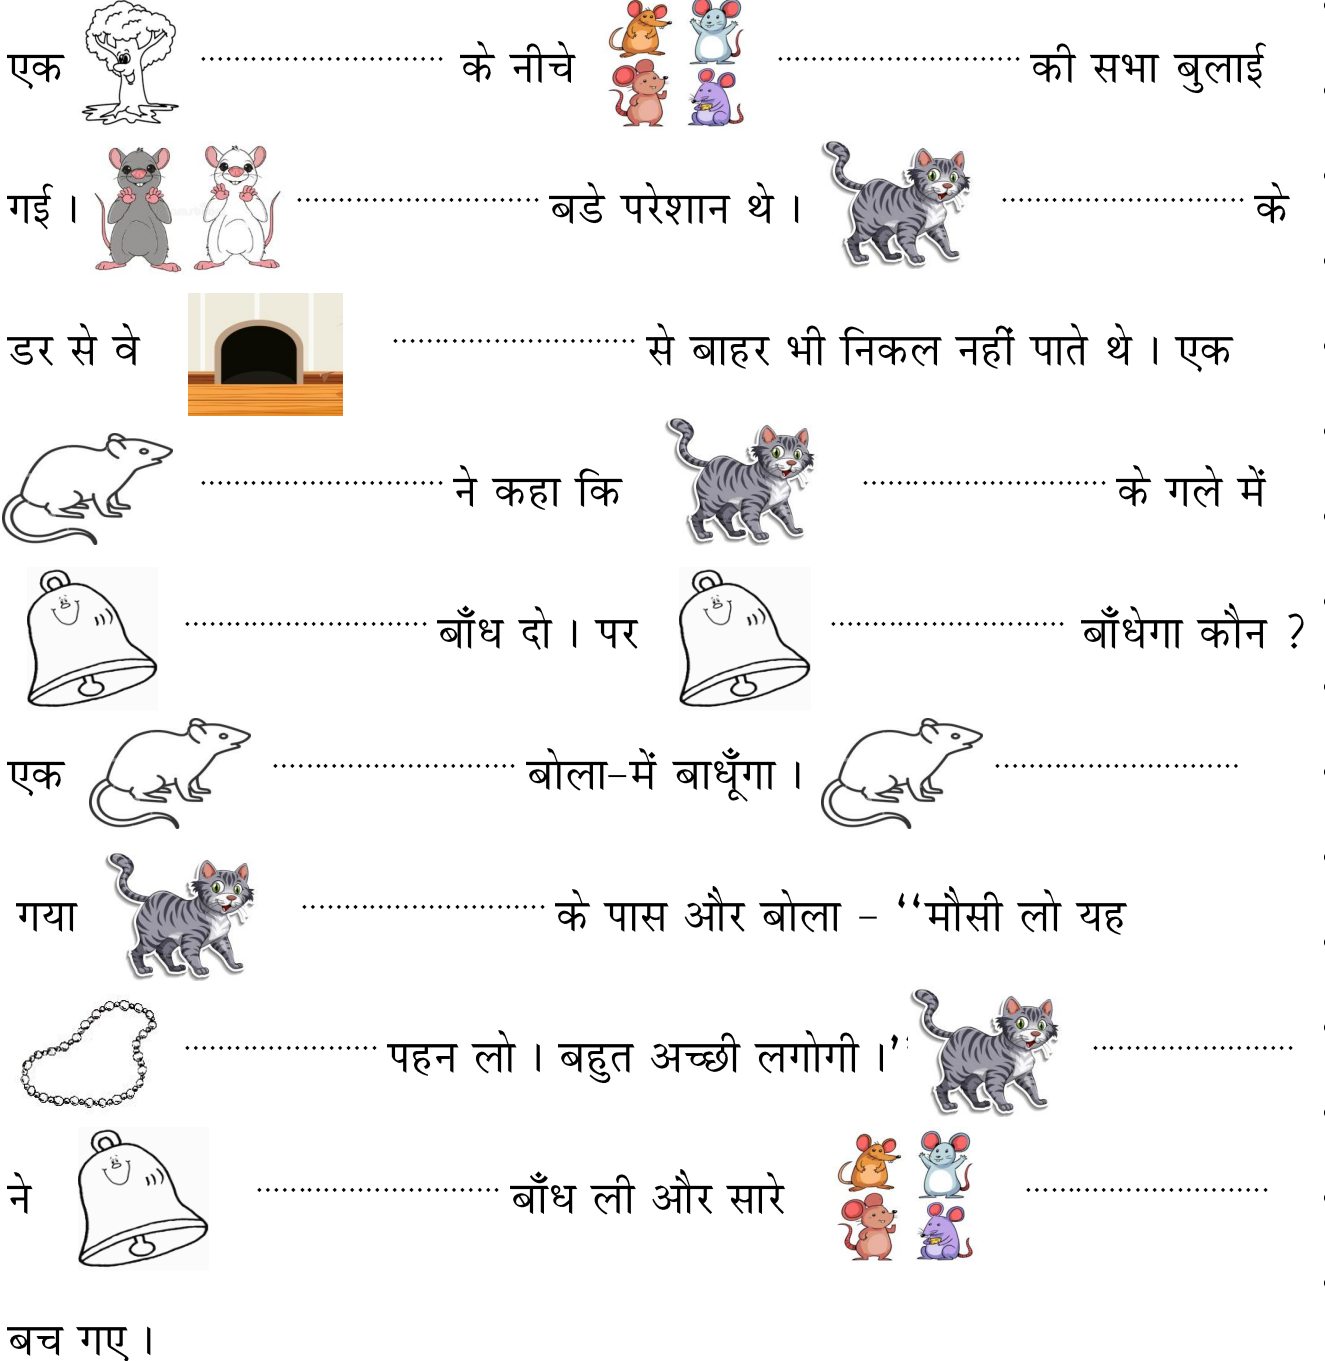 एक ............................ के नीचे ............................ की सभा बुलाई
गई । ............................ बडे परेशान थे । ............................ के
डर से वे ............................ से बाहर भी निकल नहीं पाते थे । एक
............................ ने कहा कि ............................ के गले में
............................ बाँध दो । पर ............................ बाँधेगा कौन ?
एक ............................ बोला-में बाधूँगा । ............................
गया ............................ के पास और बोला - ‘‘मौसी लो यह
....................... पहन लो । बहुत अच्छी लगोगी ।’' ........................
ने ............................ बाँध ली और सारे ............................
बच गए ।